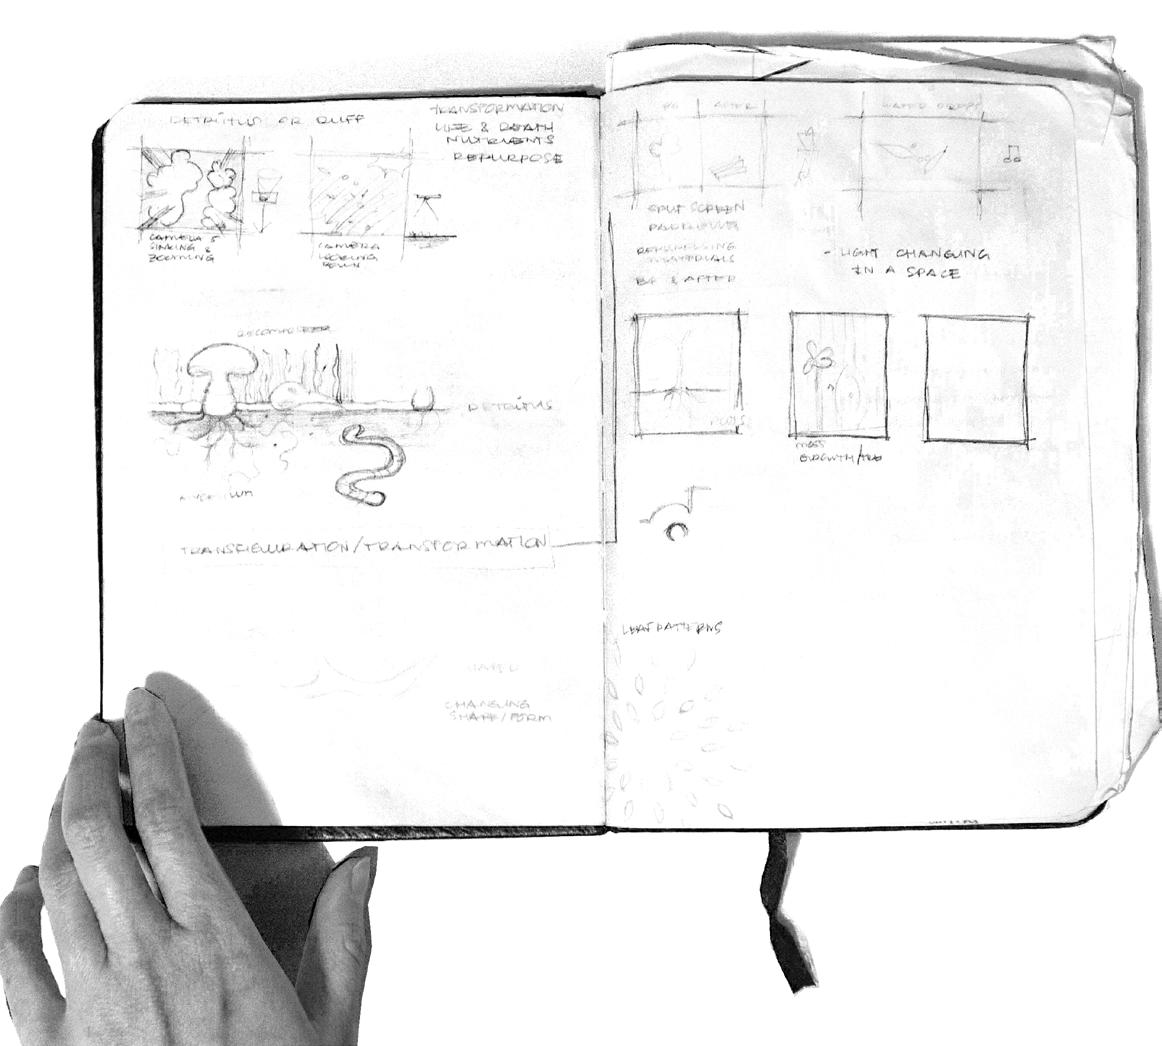 DETRITUS OR DUFF
TRANSFORMATION
LIFE & DEATH
NUTRIENTS
REPURPOSE
CAMERA IS
SINKING &
ZOOMING
CAMERA
LOOKING
DOWN
DECOMPOSER
DETRITUS
MYCELIUM
TRANSFIGURATION/TRANSFORMATION
CHANGING
SHAPE/FORM
B4
AFTER
WATER DROPS
SPLIT SCREEN
MATERIALS
B4 & AFTER
- LIGHT CHANGING
IN A SPACE
ROOTS
MOSS
GROWTH/
LEAF PATTERNS